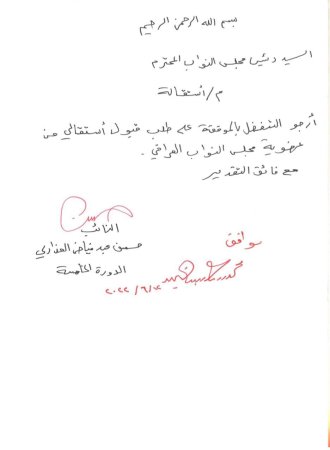 بسم الله الرحمن الرحيم
السيد رئيس مجلس النواب المحترم
م/ أستقالة
أرجو التفضل بالموفقة على طلب قبول أستقالتي من
عضوية مجلس النواب العراقي.
مع فائق التقدير
النائب
حسين عبد فياض العذاري
الدورة الخامسة
موافق
محمد
٢٠٢٢/٦/